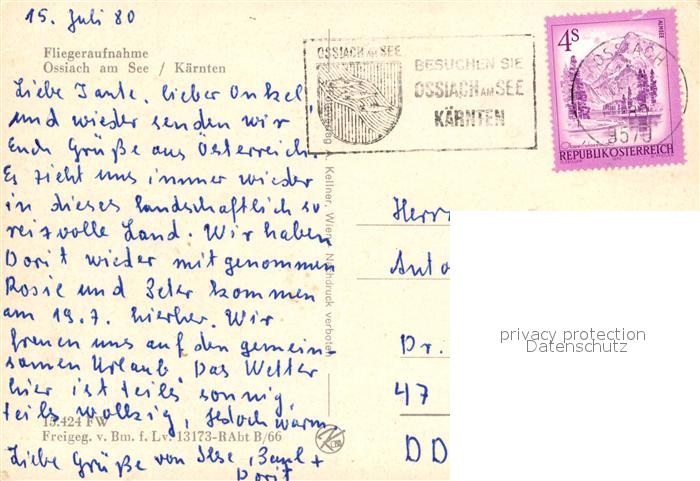 15. Juli 80
Fliegeraufnahme
Ossiach am See / Kärnten
Liebe Tante, lieber Onkel
und wieder senden wir
Euch Grüße aus Österreich.
Es zieht uns immer wieder
in dieses landschaftlich so
reizvolle Land. Wir haben
Dorit wieder mitgenommen
Rosie und Peter kommen
am 19.7. hierher. Wir
freuen uns auf den gemein-
samen Urlaub Das Wetter
hier ist teils sonnig
teils wolkig, jedoch warm
13.424 FW
Freigeg. v. Bm. f. Lv. 13173-RAbt B/66
Liebe Grüße von Ilse, +
Dorit
A. Kellner, Wien Nachdruck verboten
OSSIACH AM SEE
BESUCHEN SIE
OSSIACH AM SEE
KÄRNTEN
4S
ALMSEE
REPUBLIK ÖSTERREICH
OSSIACH
9570
Herrn
Anto
Dr.
47
DD
privacy protection
Datenschutz